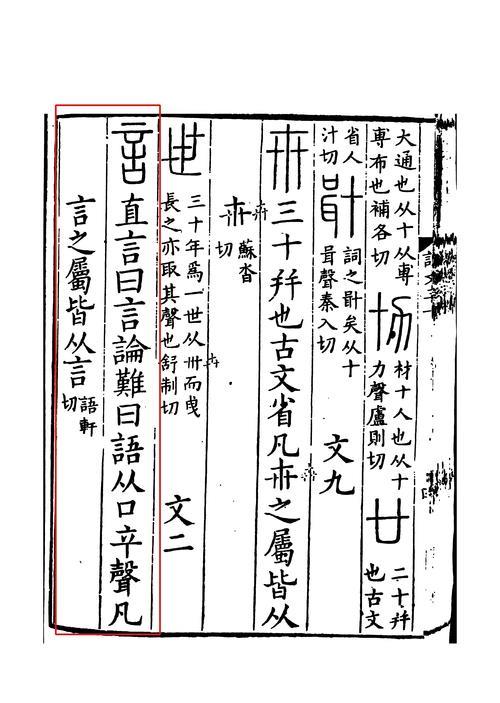 大通也从十从尃
尃布也補各切
材十人也从十
力聲盧則切
廿
二十幷
也古文
省人
汁切
詞之卙矣从十
咠聲秦入切
文九
卅三十幷也古文省凡卅之屬皆从
卅
蘇沓
切
世
三十年爲一世从卅而曳
長之亦取其聲也舒制切
文二
言直言曰言論難曰語从口䇂聲凡
言之屬皆从言
語軒
切